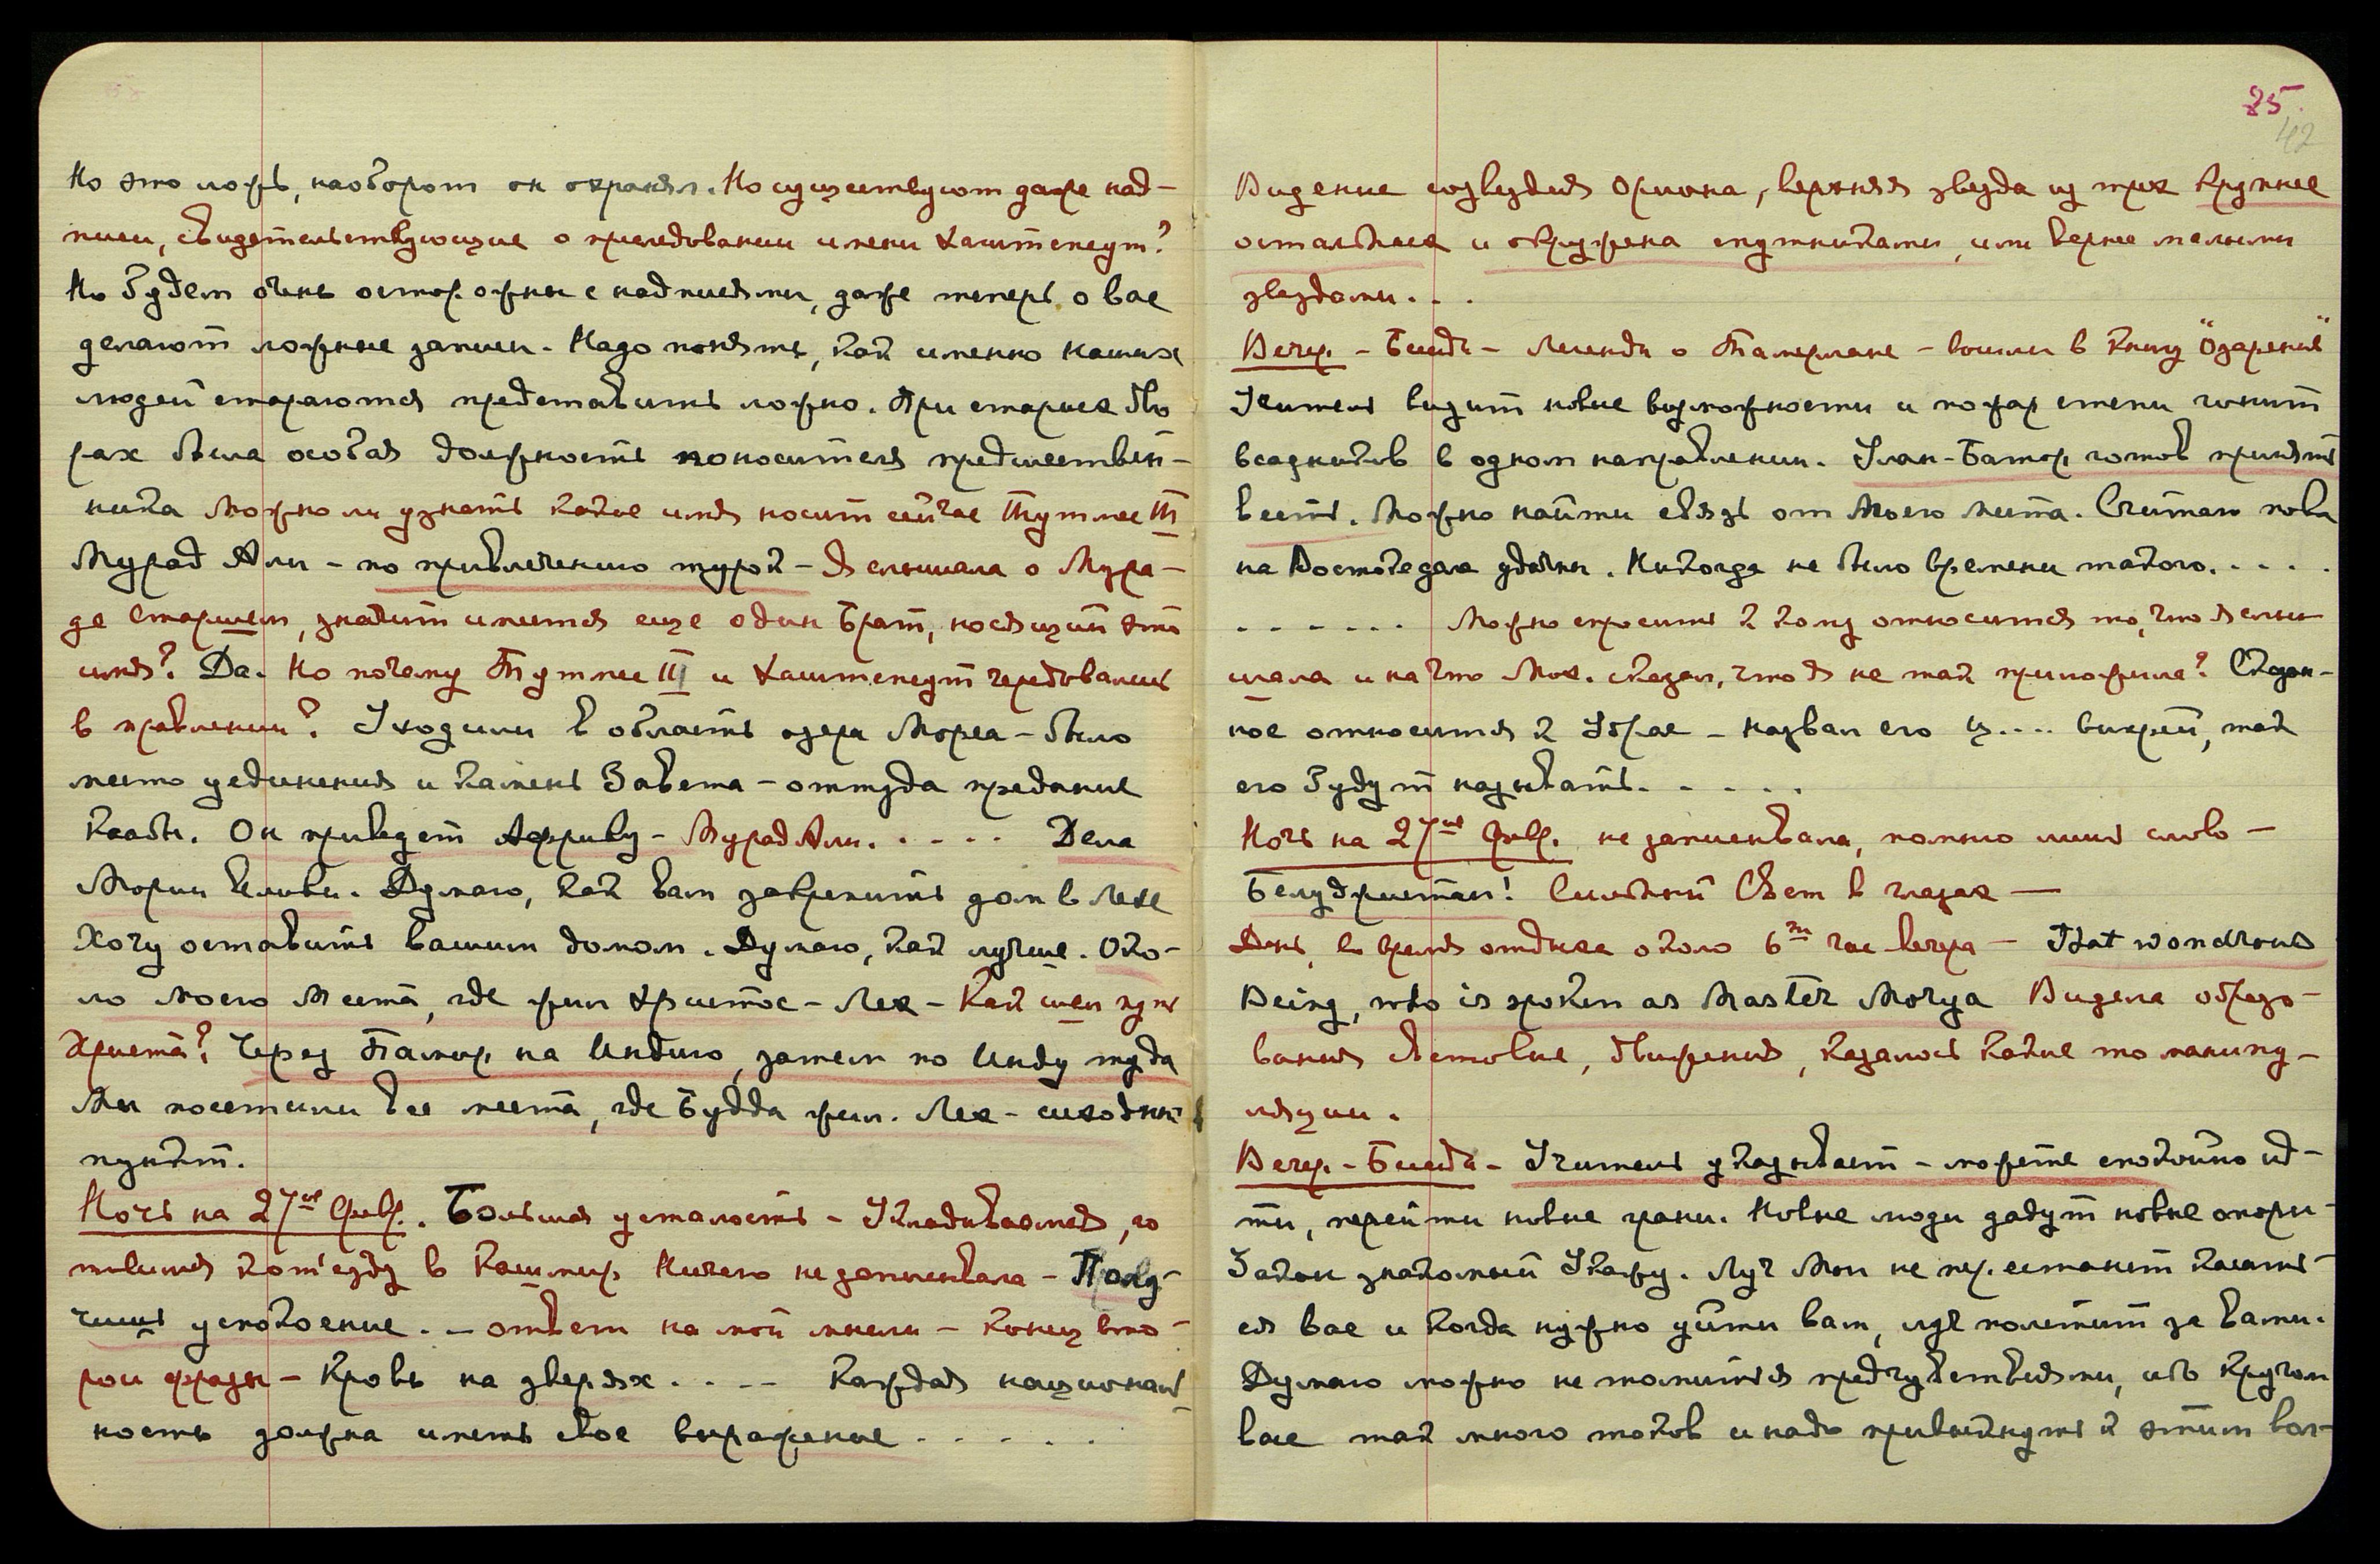 Но это ложь, наоборот он охранял. Но существуют даже над-
писи, свидетельствующие о преследовании имени Хаштепсут?
Но будем очень осторожны с надписями, даже теперь о вас
делают ложные записи. Надо понять, как именно наших
людей стараются представить ложно. При старых дво
рах была особая должность поносителя предшествен-
ника Можно ли узнать какое имя носит сейчас Тутмес III
Мурад Али - по привлечению турок - Я слышала о Мура-
де Старшем, значит имеется еще один Брат, носящий это
имя? Да. Но почему Тутмес III и Хаштепсут чередовались
в правлении? Уходили в область озера Мореа - было
место уединения и Камень Завета - оттуда предание
Каабы. Он приведет Африку - Мурад Али. . - . . Дела
Мории велики. Думаю, как вам закрепить дом в Лехе
Хочу оставить вашим домом. Думаю, как лучше. Око-
ло моего Места, где жил Христос - Лех - Как шел путь
Христа? Через Памир на Индию, затем по Инду туда
Мы посетили все места, где Будда жил. Лех - исходный
пункт.
Ночь на 27ое Февр. Большая усталость - Укладываемся, го
товимся к от'езду в Кашмир Ничего не записывала - Полу-
чишь успокоение. - ответ на мои мысли - Конец вто-
рой фразы - Кровь на зверях. . - - Каждая националь
ность должна иметь свое выражение . - . - . .
25.
42
Видение созвездия Ориона, верхняя звезда из трех крупнее
остальных и окружена спутниками, или вернее малыми
звездами. . .
Вечер. - Беседа - Легенда о Тамерлане - вошли в книгу "Озарение"
Учитель видит новые возможности и пожар степи гонит
всадников в одном направлении. Улан-Батор готов принять
весть. Можно найти связь от Моего Места. Считаю нова
на Востоке дела удачны. Никогда не было времени такого. . . . .
- - - - - . Можно спросить к кому относится то, что я слы
шала и на что Мое. сказал, что я не так приложила? Сказан-
ное относится к Убрае - назвал его ц.... вихрей, так
его будут называть. - - . - .
Ночь на 27ое Февр. не записывала, помню лишь слово -
Белуджистан! Сильный Свет в глазах —
День, во время отдыха около 6ти час вечера - That wondrous
Being, who is spoken as Master Morya Видела образо-
вания световые, движения, казалось какие то манипу-
ляции.
Вечер. - Беседа - Учитель указывает - можете спокойно ид-
ти, перейти новые грани. Новые люди дадут новые опоры
Закон знакомый Укажу. Луч Мой не перестанет касать-
ся вас и когда нужно уйти вам, луч полетит за вами.
Думаю можно не томиться предчувствиями, ибо кругом
вас так много токов и надо привыкнуть к этим вол-